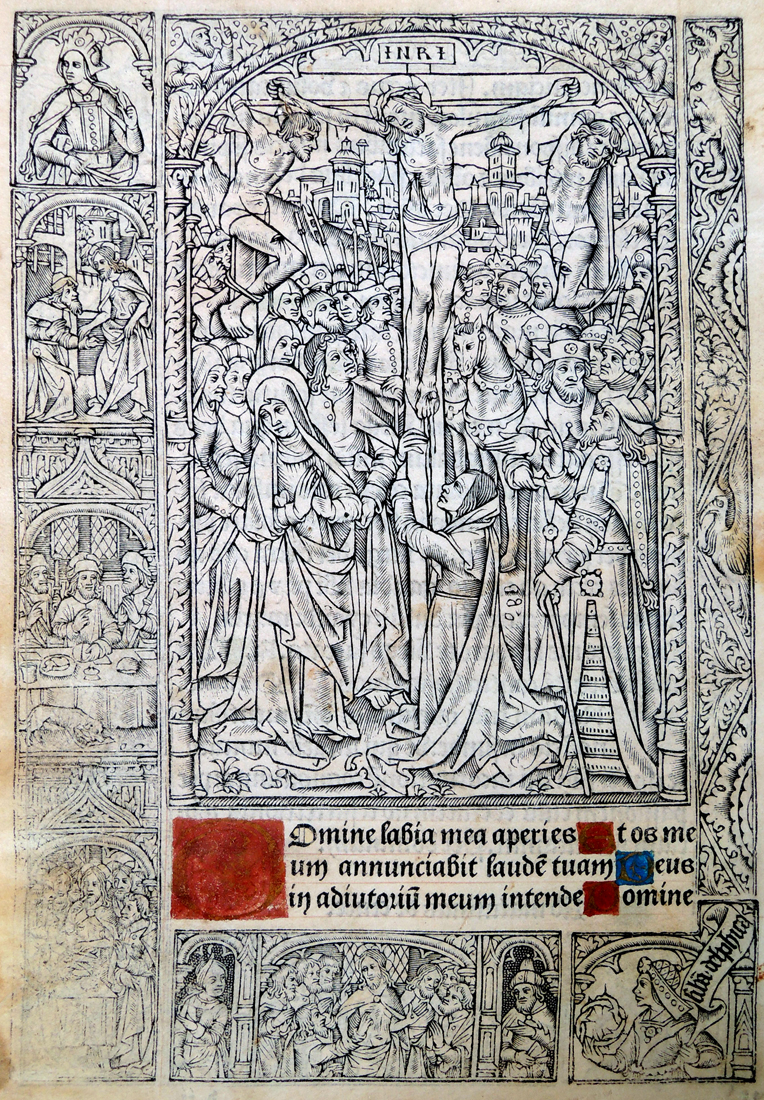 INRI
Domine labia mea aperies Et os me
um annunciabit laudē tuam Deus
in adiutoriū meum intende Domine